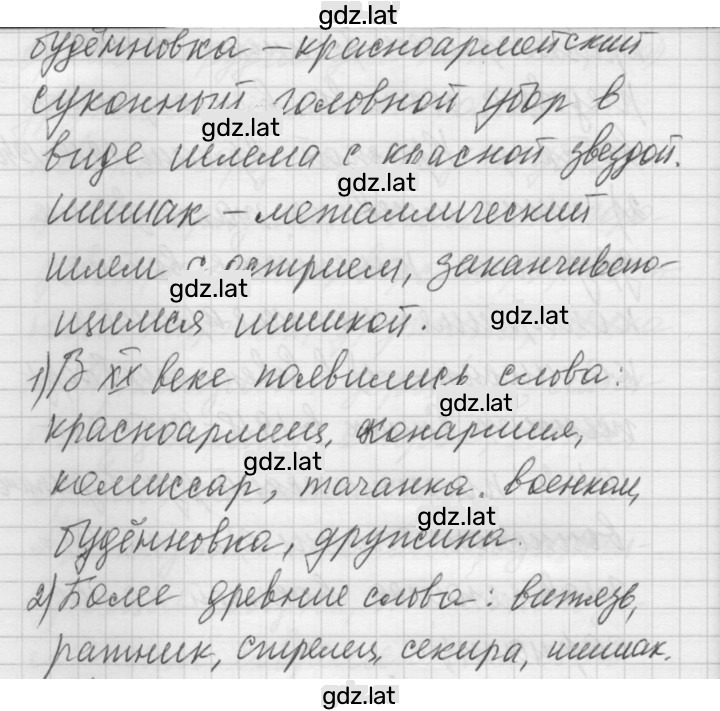 gdz.lat
будённовка – красноармейский
суконный головной убор в
gdz.lat
виде шлема с красной звездой.
gdz.lat
шишак – металлический
шлем с острием, заканчиваю-
gdz.lat
щимся шишкой.
gdz.lat
1) В XX веке появились слова:
gdz.lat
красноармеец, конармия,
gdz.lat
комиссар, тачанка. военком,
gdz.lat
будённовка, дружина.
2) Более древние слова: витязь,
ратник, стрелец, секира, шишак.
gdz.lat